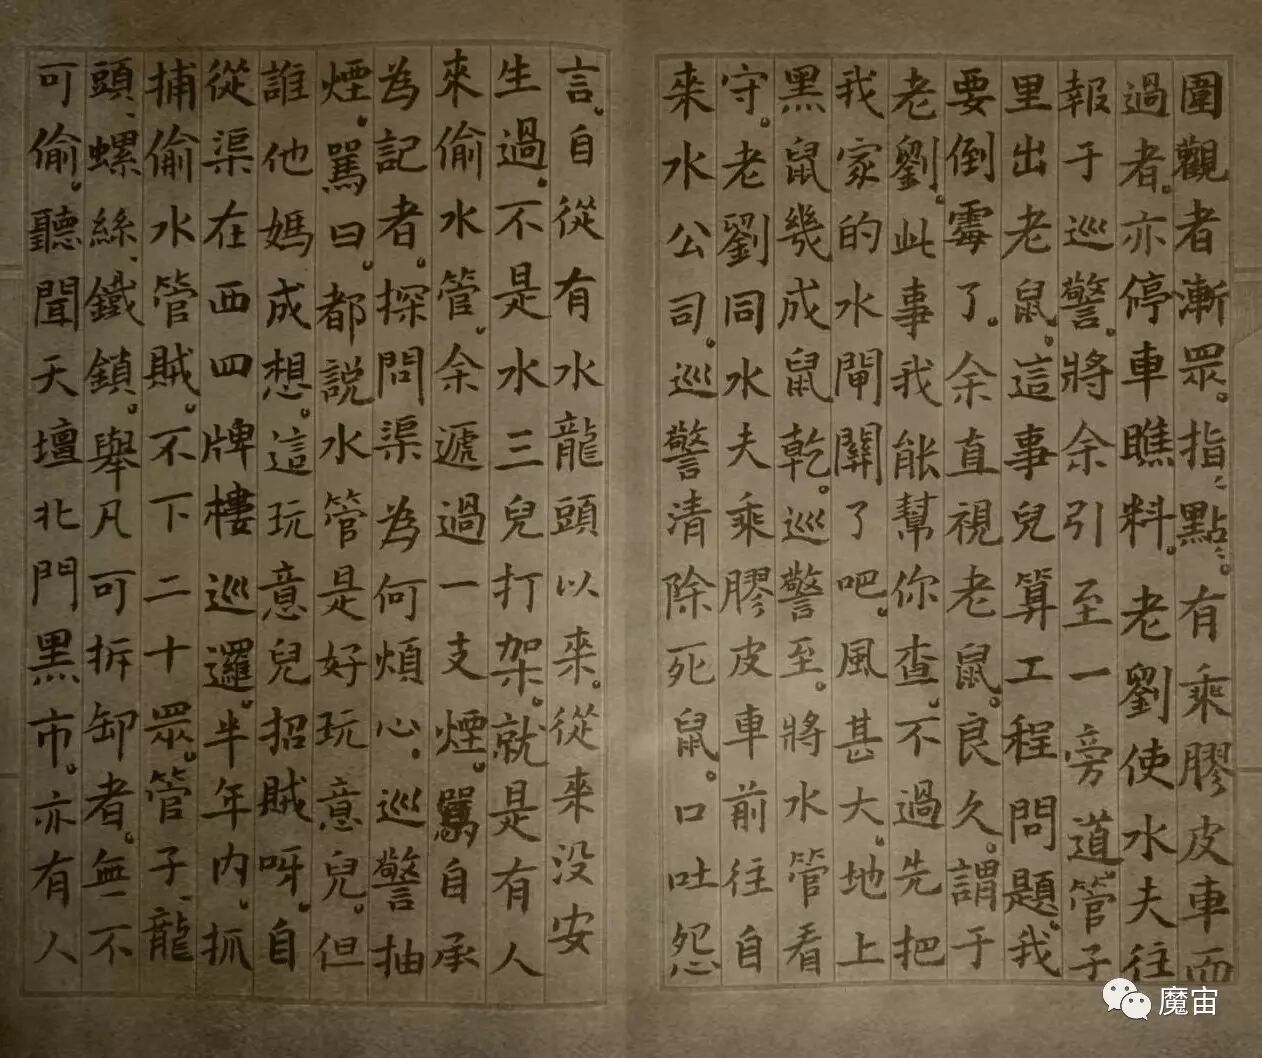 圍觀者漸眾。指指點點。有乘膠皮車而
過者。亦停車瞧料。老劉使水夫往
報于巡警。將余引至一旁道。管子
里出老鼠。這事兒算工程問題。我
要倒霉了。余直視老鼠。良久。謂于
老劉。此事我能幫你查。不過先把
我家的水閘關了吧。風甚大。地上
黑鼠幾成鼠乾。巡警至。將水管看
守。老劉同水夫乘膠皮車前往自
来水公司。巡警清除死鼠。口吐怨
言。自從有水龍頭以来。從来没安
生過。不是水三兒打架。就是有人
來偷水管。余遞過一支煙。罵自承
為記者。探問渠為何煩心。巡警抽
煙。罵曰。都説水管是好玩意兒。但
誰他媽成想。這玩意兒招賊呀。自
從渠在西四牌樓巡邏。半年内。抓
捕偷水管賊。不下二十眾。管子、龍
頭、螺絲、鐵鎖。舉凡可拆卸者。無不
可偷。聽聞天壇北門黑市。亦有人
魔宙